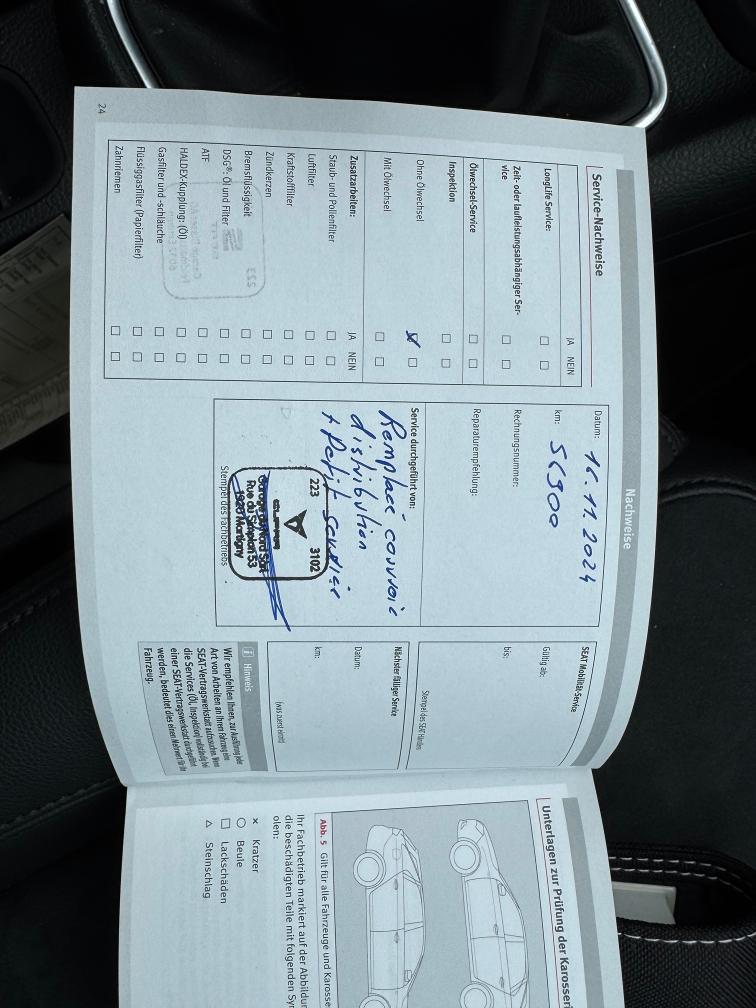 Nachweise
Service-Nachweise
JA NEIN
LongLife Service:
Zeit- oder laufleistungsabhängiger Ser-
vice
Ölwechsel-Service
Inspektion
Ohne Ölwechsel
Mit Ölwechsel
Zusatzarbeiten: JA NEIN
Staub- und Pollenfilter
Luftfilter
Kraftstofffilter
Zündkerzen
Bremsflüssigkeit
DSG®: Öl und Filter
ATF
HALDEX-Kupplung: (Öl)
Gasfilter und -schläuche
Flüssiggasfilter (Papierfilter)
Zahnriemen
24
Datum: 16.11.2024
km: 56900
Rechnungsnummer:
Reparaturempfehlung:
Service durchgeführt von:
Remplacé courroie
distribution
+ Petit service
223 3102
CUPRA
Garage du Nord Sion
Rue du Simplon 53
1920 Martigny
Stempel des Fachbetriebs
SEAT Mobilität-Service
Gültig ab:
bis:
Stempel des SEAT Händlers
Nächster fälliger Service
Datum:
km:
(was zuerst eintritt)
Hinweis
Wir empfehlen Ihnen, zur Ausführung jeder
Art von Arbeiten an Ihrem Fahrzeug eine
SEAT-Vertragswerkstatt aufzusuchen. Wenn
die Services (Öl, Inspektion) vollständig bei
einer SEAT-Vertragswerkstatt durchgeführt
werden, bedeutet dies einen Mehrwert für Ihr
Fahrzeug.
Unterlagen zur Prüfung der Karosseri
Abb. 5 Gilt für alle Fahrzeuge und Karosse
Ihr Fachbetrieb markiert auf der Abbildun
die beschädigten Teile mit folgenden Sy
olen:
× Kratzer
○ Beule
□ Lackschäden
△ Steinschlag